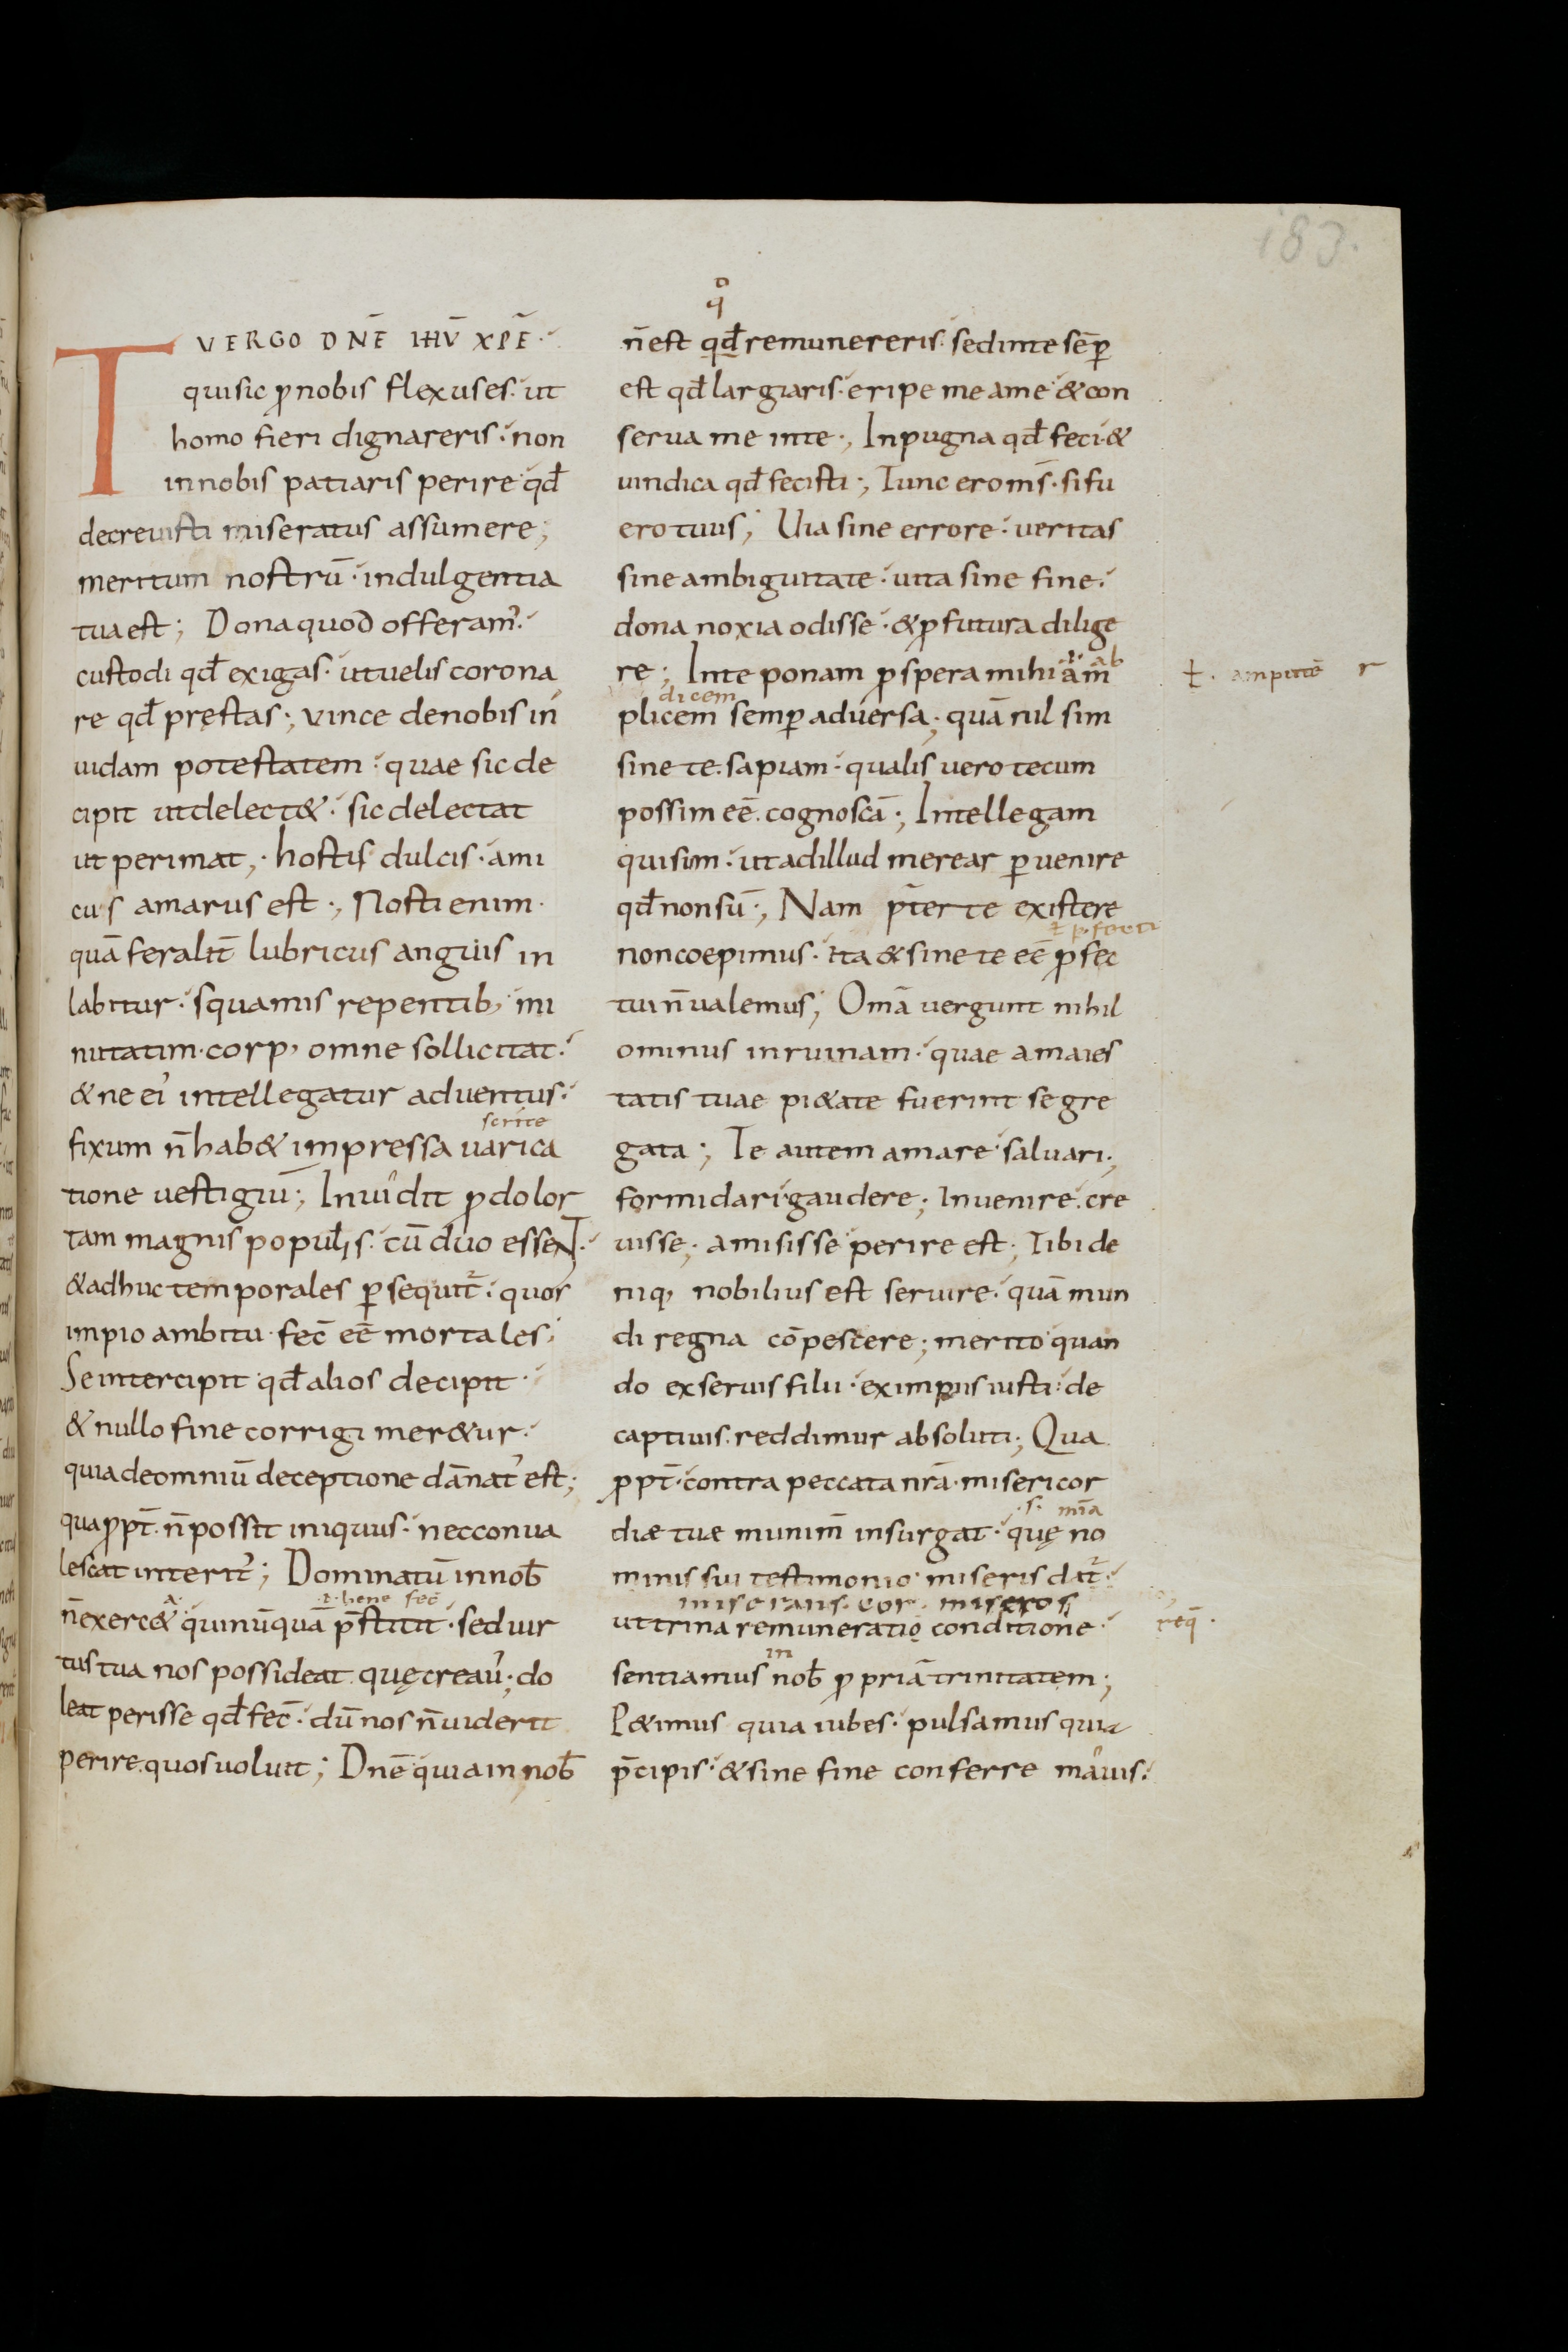 183.
TVERGO DNĒ IHV̄ XPĒ·
quisic ꝓnobis flexuses· ut
homo fieri dignareris· non
innobis patiaris perire qđ
decreuisti miseratus assumere;
meritum nostrū· indulgentia
tua est; Dona quod offeram᾽·
custodi qđ exigas· utuelis corona
re qđ pręstas; vince denobis in
uidam potestatem· quae sic de
cipit utdelect&· sic delectat
ut perimat,· hostis dulcis· ami
cus amarus est·, Nosti enim·
quā feralit̄ lubricus anguis in
labitur· squamis repentib, mi
nutatim· corp᾽ omne sollicitat·
& ne ei᾽ intellegatur aduentus·
scrite
fixum n̄ hab& impressa uarica
tione uestigiū; Inuidit ꝓdolor
tam magnis populis· cū duo essent·
& adhuc temporales ꝑsequit᷑· quos
impio ambitu· fec̄ eē mortales;
Se intercipit qđ alios decipit·
& nullo fine corrigi mer&ur·
quia deomniū deceptione dānat᾽ est;
quaꝓpt̄· n̄ possit iniquus· necconua
lescat interit᾽; Dominatū innob̄
a· ł· bene fec̄
n̄ exerc& quinūquā p̄stitit· sed uir
tus tua nos possideat quęcreau᾽; do
leat perisse qđ fec̄· dū nos n̄ uiderit
perire quos uoluit; Dnē quia in nob̄
qͦ
n̄ est qđ remunereris· sed inte sēꝑ
est qđ largiaris· eripe me ame & con
serua me inte·, Inpugna qđ feci· &
uindica qđ fecisti·, Tunc ero m̄s· si fu
ero tuus; Uia sine errore· veritas
sine ambiguitate· uita sine fine·
dona noxia odisse· & ꝓfutura dilige
ł· ab
re; Inte ponam ꝓspera mihi ām
ł· ampitiē r
dicem
plicem semꝑ aduersa; quā nil sim
sine te· sapiam· qualis uero tecum
possim eē· cognoscā·, Intellegam
quisim· ut adillud merear ꝑuenire
qđ non sū·, Nam p̄ter te existere
ł ꝑfecti
non coepimus· ita & sine te eē ꝓfec
tui n̄ ualemus; Omā vergunt nihil
ominus inruinam· quae amaies
tatis tuae pi&ate fuerint segre
gata; Te autem amare· saluari;
formidari gaudere; Inuenire· cre
uisse; amisisse perire est; Tibi de
niq, nobilius est seruire· quā mun
di regna cōpescere; merito quan
do exseruis filii· eximpiis iusti· de
captiuis· reddimur absoluti; Qua
ꝓpt̄· contra peccata nr̄a· misericor
·s· mīa
diæ tuæ munim̄ insurgat· quę no
minis sui testimonio· miseris dat᷑·
miserans· cor· miseros
ut trina remuneratio conditione·
req̄·
in
sentiamus nob̄ ꝓpriā trinitatem;
P&imus quia iubes· pulsamus quia
p̄cipis· & sine fine conferre mauis·